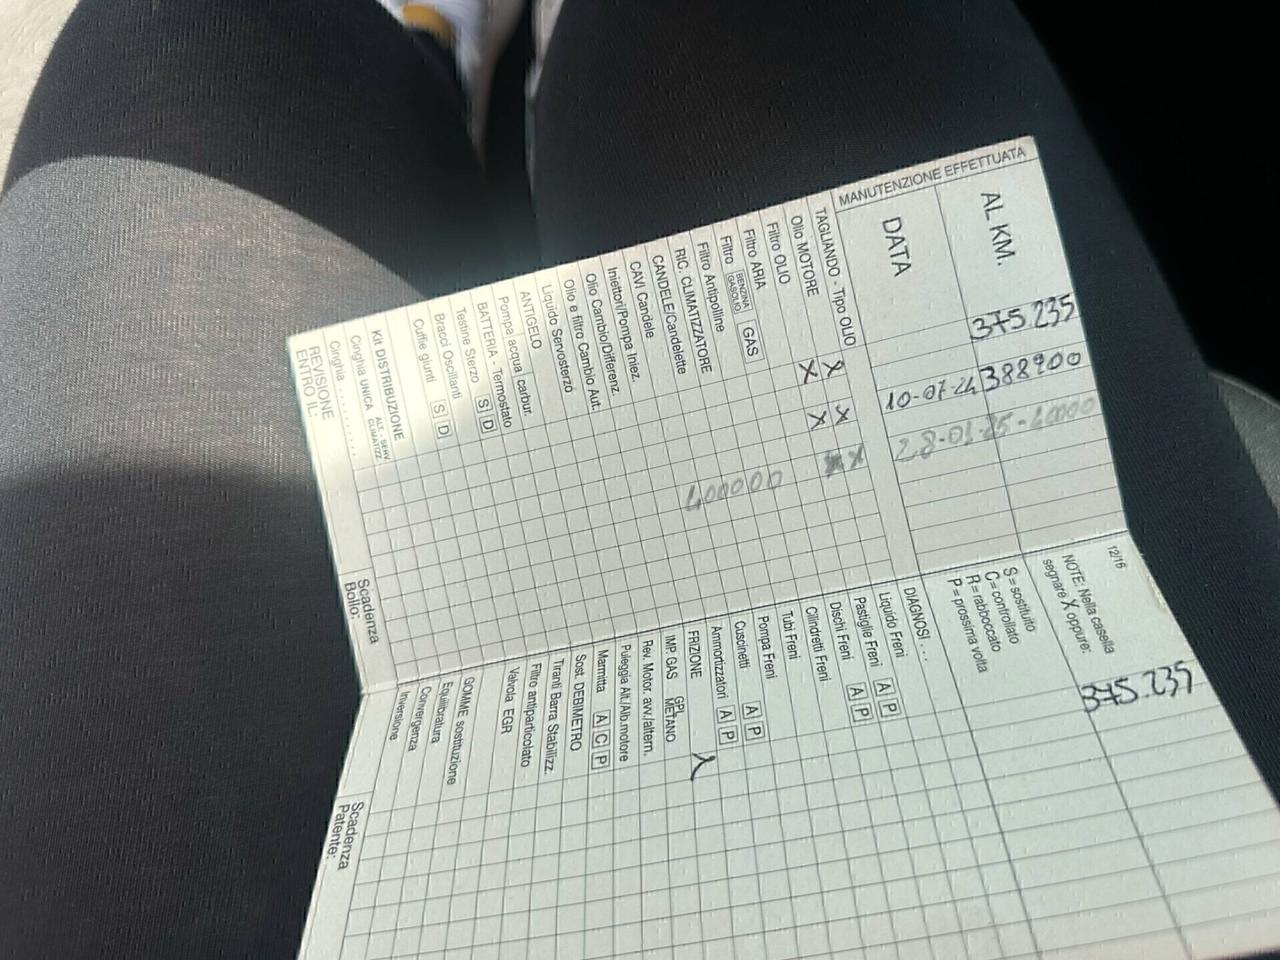 MANUTENZIONE EFFETTUATA
AL KM. 375.235 388900
DATA 10-07-24
TAGLIANDO - Tipo OLIO X X X
Olio MOTORE X X
Filtro OLIO
Filtro ARIA
Filtro BENZINA GASOLIO GAS
Filtro Antipolline
RIC. CLIMATIZZATORE
CANDELE/Candelette
CAVI Candele
Iniettori/Pompa Iniez.
Olio Cambio/Differenz.
Olio e filtro Cambio Aut.
Liquido Servosterzo
ANTIGELO
Pompa acqua carbur.
BATTERIA - Termostato
Testine Sterzo S D
Bracci Oscillanti
Cuffie giunti S D
Kit DISTRIBUZIONE
Cinghia UNICA ALT. - SERV. CLIMATIZZ.
Cinghia ..........
REVISIONE
ENTRO IL:
Scadenza
Bollo:
12/16
NOTE: Nella casella
segnare X oppure:
S = sostituito
C = controllato
R = rabboccato
P = prossima volta
375.235
DIAGNOSI ...
Liquido Freni
Pastiglie Freni A P
Dischi Freni A P
Cilindretti Freni
Tubi Freni
Pompa Freni
Cuscinetti A P
Ammortizzatori A P
FRIZIONE X
IMP. GAS GPL METANO
Rev. Motor. avv./altern.
Puleggia Alt./Alb.motore
Marmitta A C P
Sost. DEBIMETRO
Tiranti Barra Stabilizz.
Filtro antiparticolato
Valvola EGR
GOMME sostituzione
Equilibratura
Convergenza
Inversione
Scadenza
Patente: